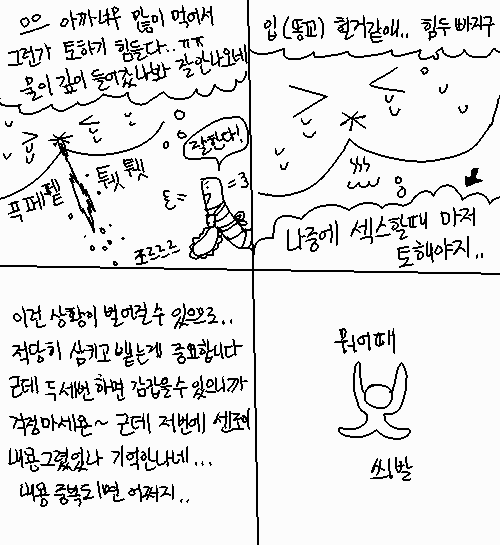 으으 아까 너무 많이 먹어서
그런가 토하기 힘들다..ㅠㅠ
물이 깊이 들어갔나봐 잘안나오네
잘한다!
푸페펱
퉛 퉷
쪼르르르
입(똥꼬) 헐거같애.. 힘두 빠지구
나중에 섹스할때 마저
토해야지..
이런 상황이 벌어질수 있으므로..
적당히 삼키고 뱉는게 중요합니다
근데 두세번 하면 감잡을수 있으니까
걱정마세욘~ 근데 저번에
내용그렸었나 기억안나네...
내용 중복되면 어쩌지..
뭐어때
씨발